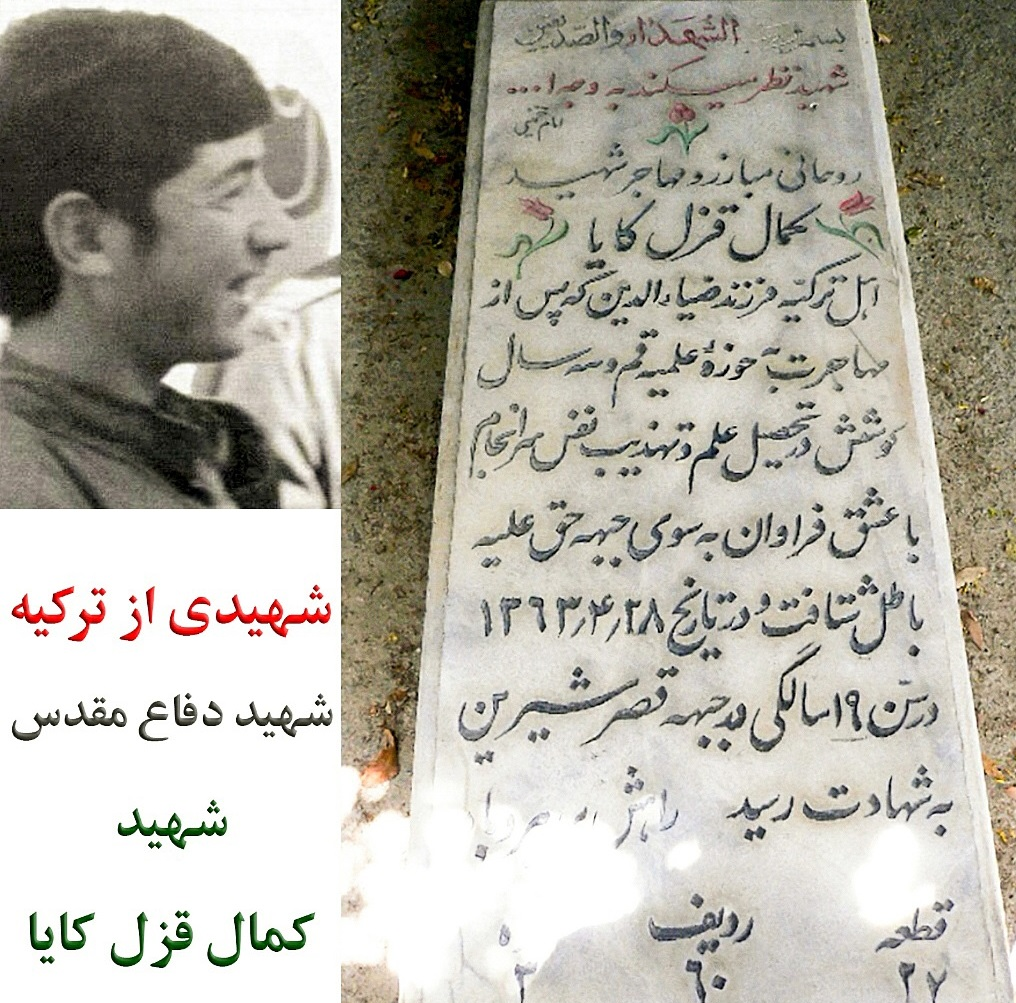 بسم رب الشهداء والصدیقین
شهید نظر میکند به وجه ا...
امام خمینی
روحانی مبارز و مهاجر شهید
کمال قزل کایا
اهل ترکیه فرزند ضیاءالدین که پس از
مهاجرت به حوزهٔ علمیه قم و سه سال
کوشش در تحصیل علم و تهذیب نفس سرانجام
با عشق فراوان به سوی جبهه حق علیه
باطل شتافت و در تاریخ ۱۳۶۳٫۴٫۲۸
در سن ۱۹ سالگی در جبهه قصر شیرین
به شهادت رسید راهش
قطعه ردیف
۲۷ ۶۰
شهیدی از ترکیه
شهید دفاع مقدس
شهید
کمال قزل کایا